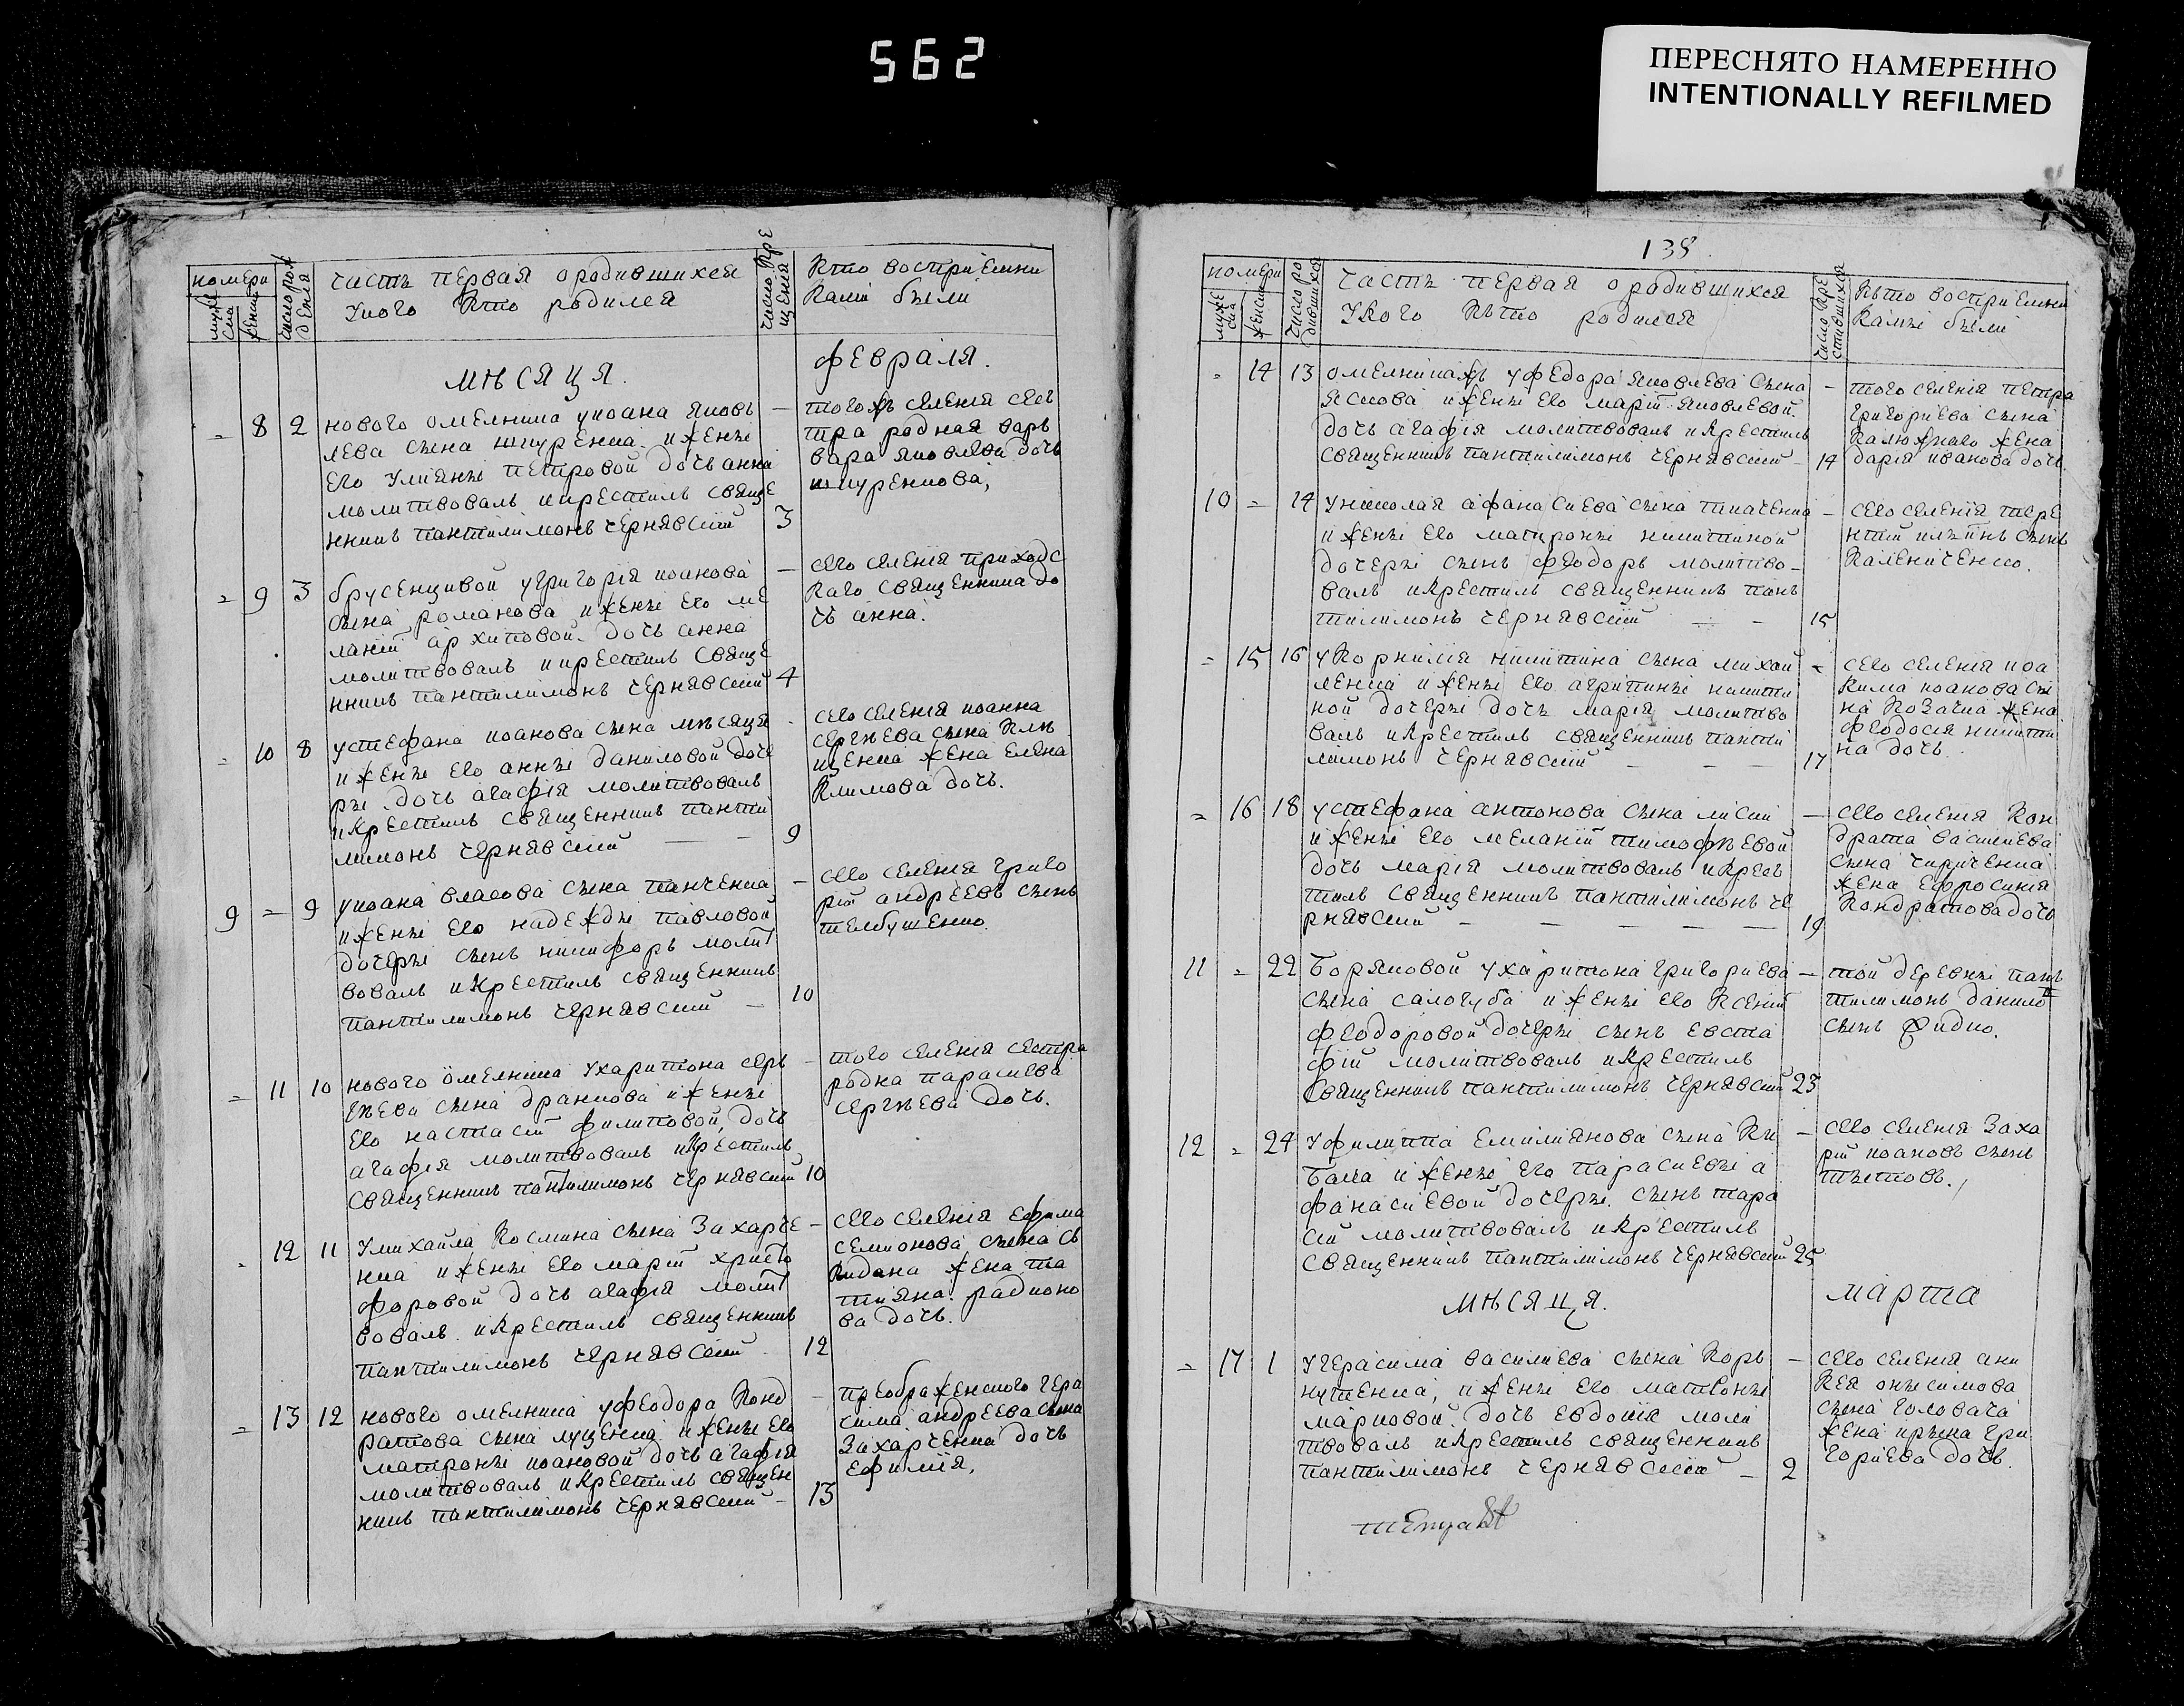 562
ПЕРЕСНЯТО НАМЕРЕННО
INTENTIONALLY REFILMED
номери
муже ска
женска
число рож дения
часть первая о родившихся
у кого кто родился
число кре щения
кто восприемни
ками были
мѣсяця
февраля.
= 8 2
нового омелника у иоана яков
лева сына шкуренка и жены
его улияны петровой дочь анна
молитвовалъ и крестилъ свяще
нникъ пантилимонъ чернявский 3
того жъ селения сес
тра родная вар
вара яковлева дочь
шкуренкова,
= 9 3
брусенцивой у григория иоанова
сына романова и жены его ме
лании архиповой дочь анна
молитвовалъ и крестилъ свяще
нникъ пантилимонъ чернявский 4
сего селения приходс
каго священника до
чь анна.
= 10 8
у стефана иоанова сына мѣсяця
и жены его анны даниловой доче
ры дочь агафія молитвовалъ
и крестилъ священникъ панти
лимонъ чернявский 9
сего селения иоанна
сергѣева сына клѣ
щенка жена елена
климова дочь.
9 = 9
у иоана власова сына панченка
и жены его надежды павловой
дочеры сынъ никифоръ молит
вовалъ и крестилъ священникъ
пантилимонъ чернявский 10
сего селения григо
рий андреевъ сынъ
телбушенко.
= 11 10
нового омелника у харитона серь
гѣева сына дранкова и жены
его настасии филиповой, дочь
агафія молитвовалъ и крестилъ
священникъ пантилимонъ чернявский 10
того селения сестра
родна параскева
сергѣева дочь.
= 12 11
у михайла космина сына захарче
нка и жены его марии христо
форовой дочь агафія молит
вовалъ и крестилъ священникъ
пантилимонъ чернявский 12
сего селения ефима
семионова сына
жена та
тияна радионо
ва дочь.
= 13 12
нового омелника у феодора конд
ратова сына луценка и жены его
матроны иоановой дочь агафія
молитвовалъ и крестилъ священ
никъ пантилимонъ чернявский 13
преображенского гера
сима андреева сына
захарченка дочь
ефимія,
138.
номери
муже ска
женска
число ро дившихся
часть первая о родившихся
у кого кьто родился
число кре стившихся
кьто восприемни
камы были
= 14 13
омелникахъ у федора яковлева сына
яскова и жены его марии яковлевой
дочь агафія молитвовалъ и крестилъ
священникъ пантилимонъ чернявский 14
того селения петра
григориева сына
калюжнаго жена
дария иванова дочь.
10 = 14
у николая афанасиева сына ткаченка
и жены его матроны никитиной
дочеры сынъ феодоръ молитво
валъ и крестилъ священникъ пан
тилимонъ чернявский 15
сего селения тере
нтий сынъ
калениченко.
= 15 16
у корнилия никитина сына михай
ленка и жены его агрипины никити
ной дочеры дочь мария молитво
валъ и крестилъ священникъ панти
лимонъ чернявский 17
сего селения иоа
кима иоанова сы
на козачка жена
феодосия никити
на дочь.
= 16 18
у стефана антонова сына лисии
и жены его мелании тимофѣевой
дочь мария молитвовалъ и крес
тилъ священникъ пантилимонъ че
рнявский 19
сего селения кон
драта василиева
сына чириченка
жена ефросиния
кондратова дочь
11 = 22
Боряковой у харитона григориева
сына салогуба и жены его ксении
феодоровой дочеры сынъ евста
фий молитвовалъ и крестилъ
священникъ пантилимонъ чернявский 23
той деревны пан
тилимонъ данило
сынъ фидко.
12 = 24
у филиппа емилиянова сына ки
бака и жены его парасиевы а
фанасиевой дочеры. сынъ тара
сий молитвовалъ и крестилъ
священникъ пантилимонъ чернявский 25
сего селения заха
рий иоановъ сынъ
тытовъ.
мѣсяця.
марта
= 17 1
у герасима василиева сына корь
нутенка, и жены его матроны
марковой. дочь евдокия моли
твовалъ и крестилъ священникъ
пантилимонъ чернявский 2
сего селения ани
кея онысимова
сына головача
жена ирына гри
гориева дочь.